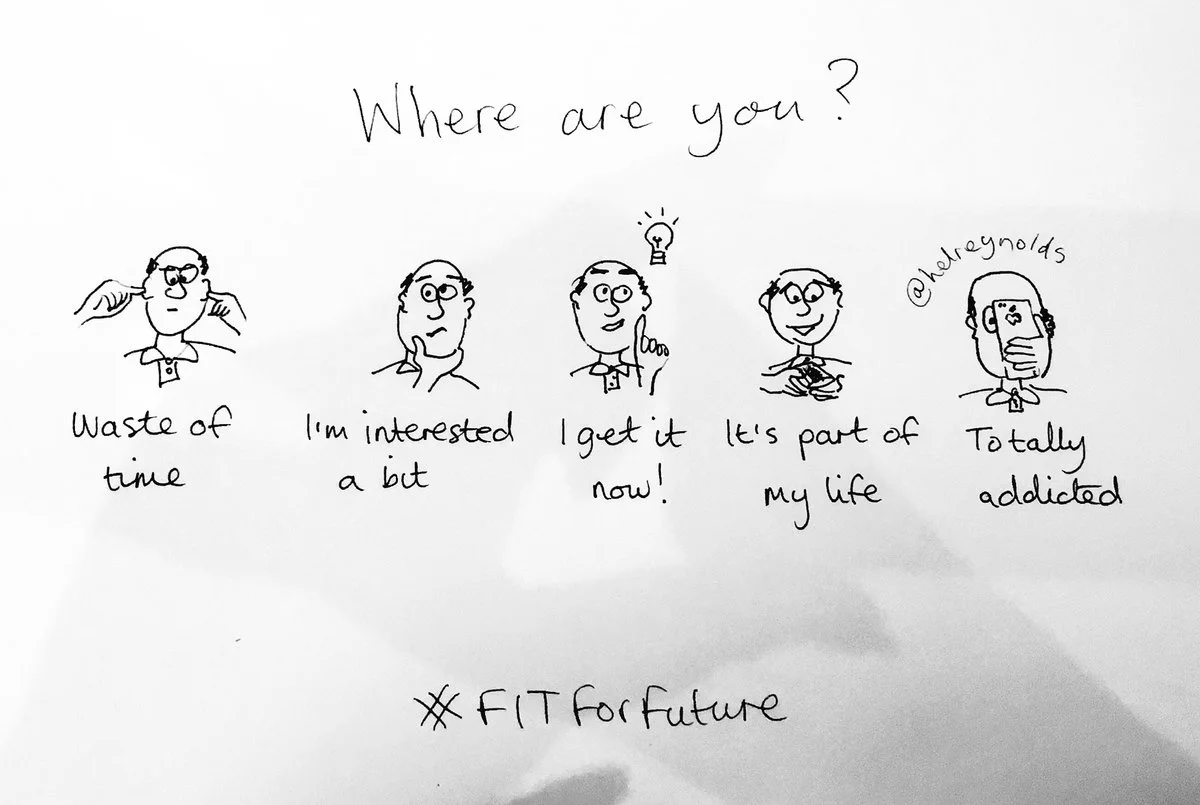 Where are you?
@helreynolds
Waste of
time
I'm interested
a bit
I get it
now!
It's part of
my life
Totally
addicted
#FITForFuture